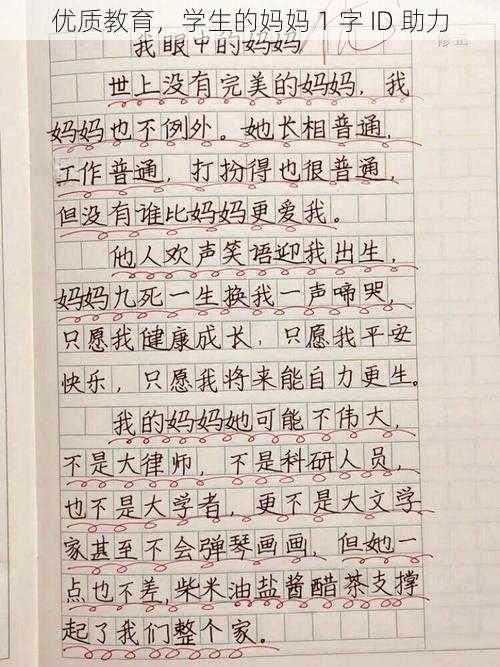 优质教育，学生的妈妈 1 字 ID 助力
我眼中的妈妈
修正
世上没有完美的妈妈，我
妈妈也不例外。她长相普通，
工作普通，打扮得也很普通，
但没有谁比妈妈更爱我。
他人欢声笑语迎我出生，
妈妈九死一生换我一声啼哭，
只愿我健康成长，只愿我平安
快乐，只愿我将来能自力更生。
我的妈妈她可能不伟大，
不是大律师，不是科研人员，
也不是大学者，更不是大文学
家甚至不会弹琴画画，但她一
点也不差，柴米油盐酱醋茶支撑
起了我们整个家。